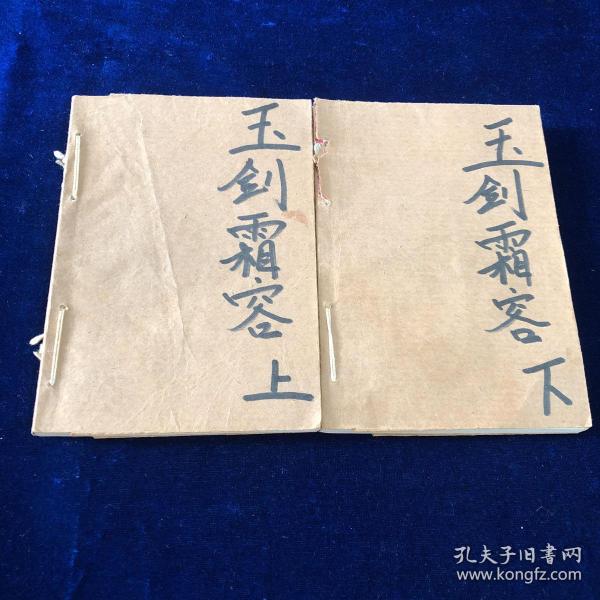 玉剑霜容
上
玉剑霜客
下
孔夫子旧書网
www.kongfz.com